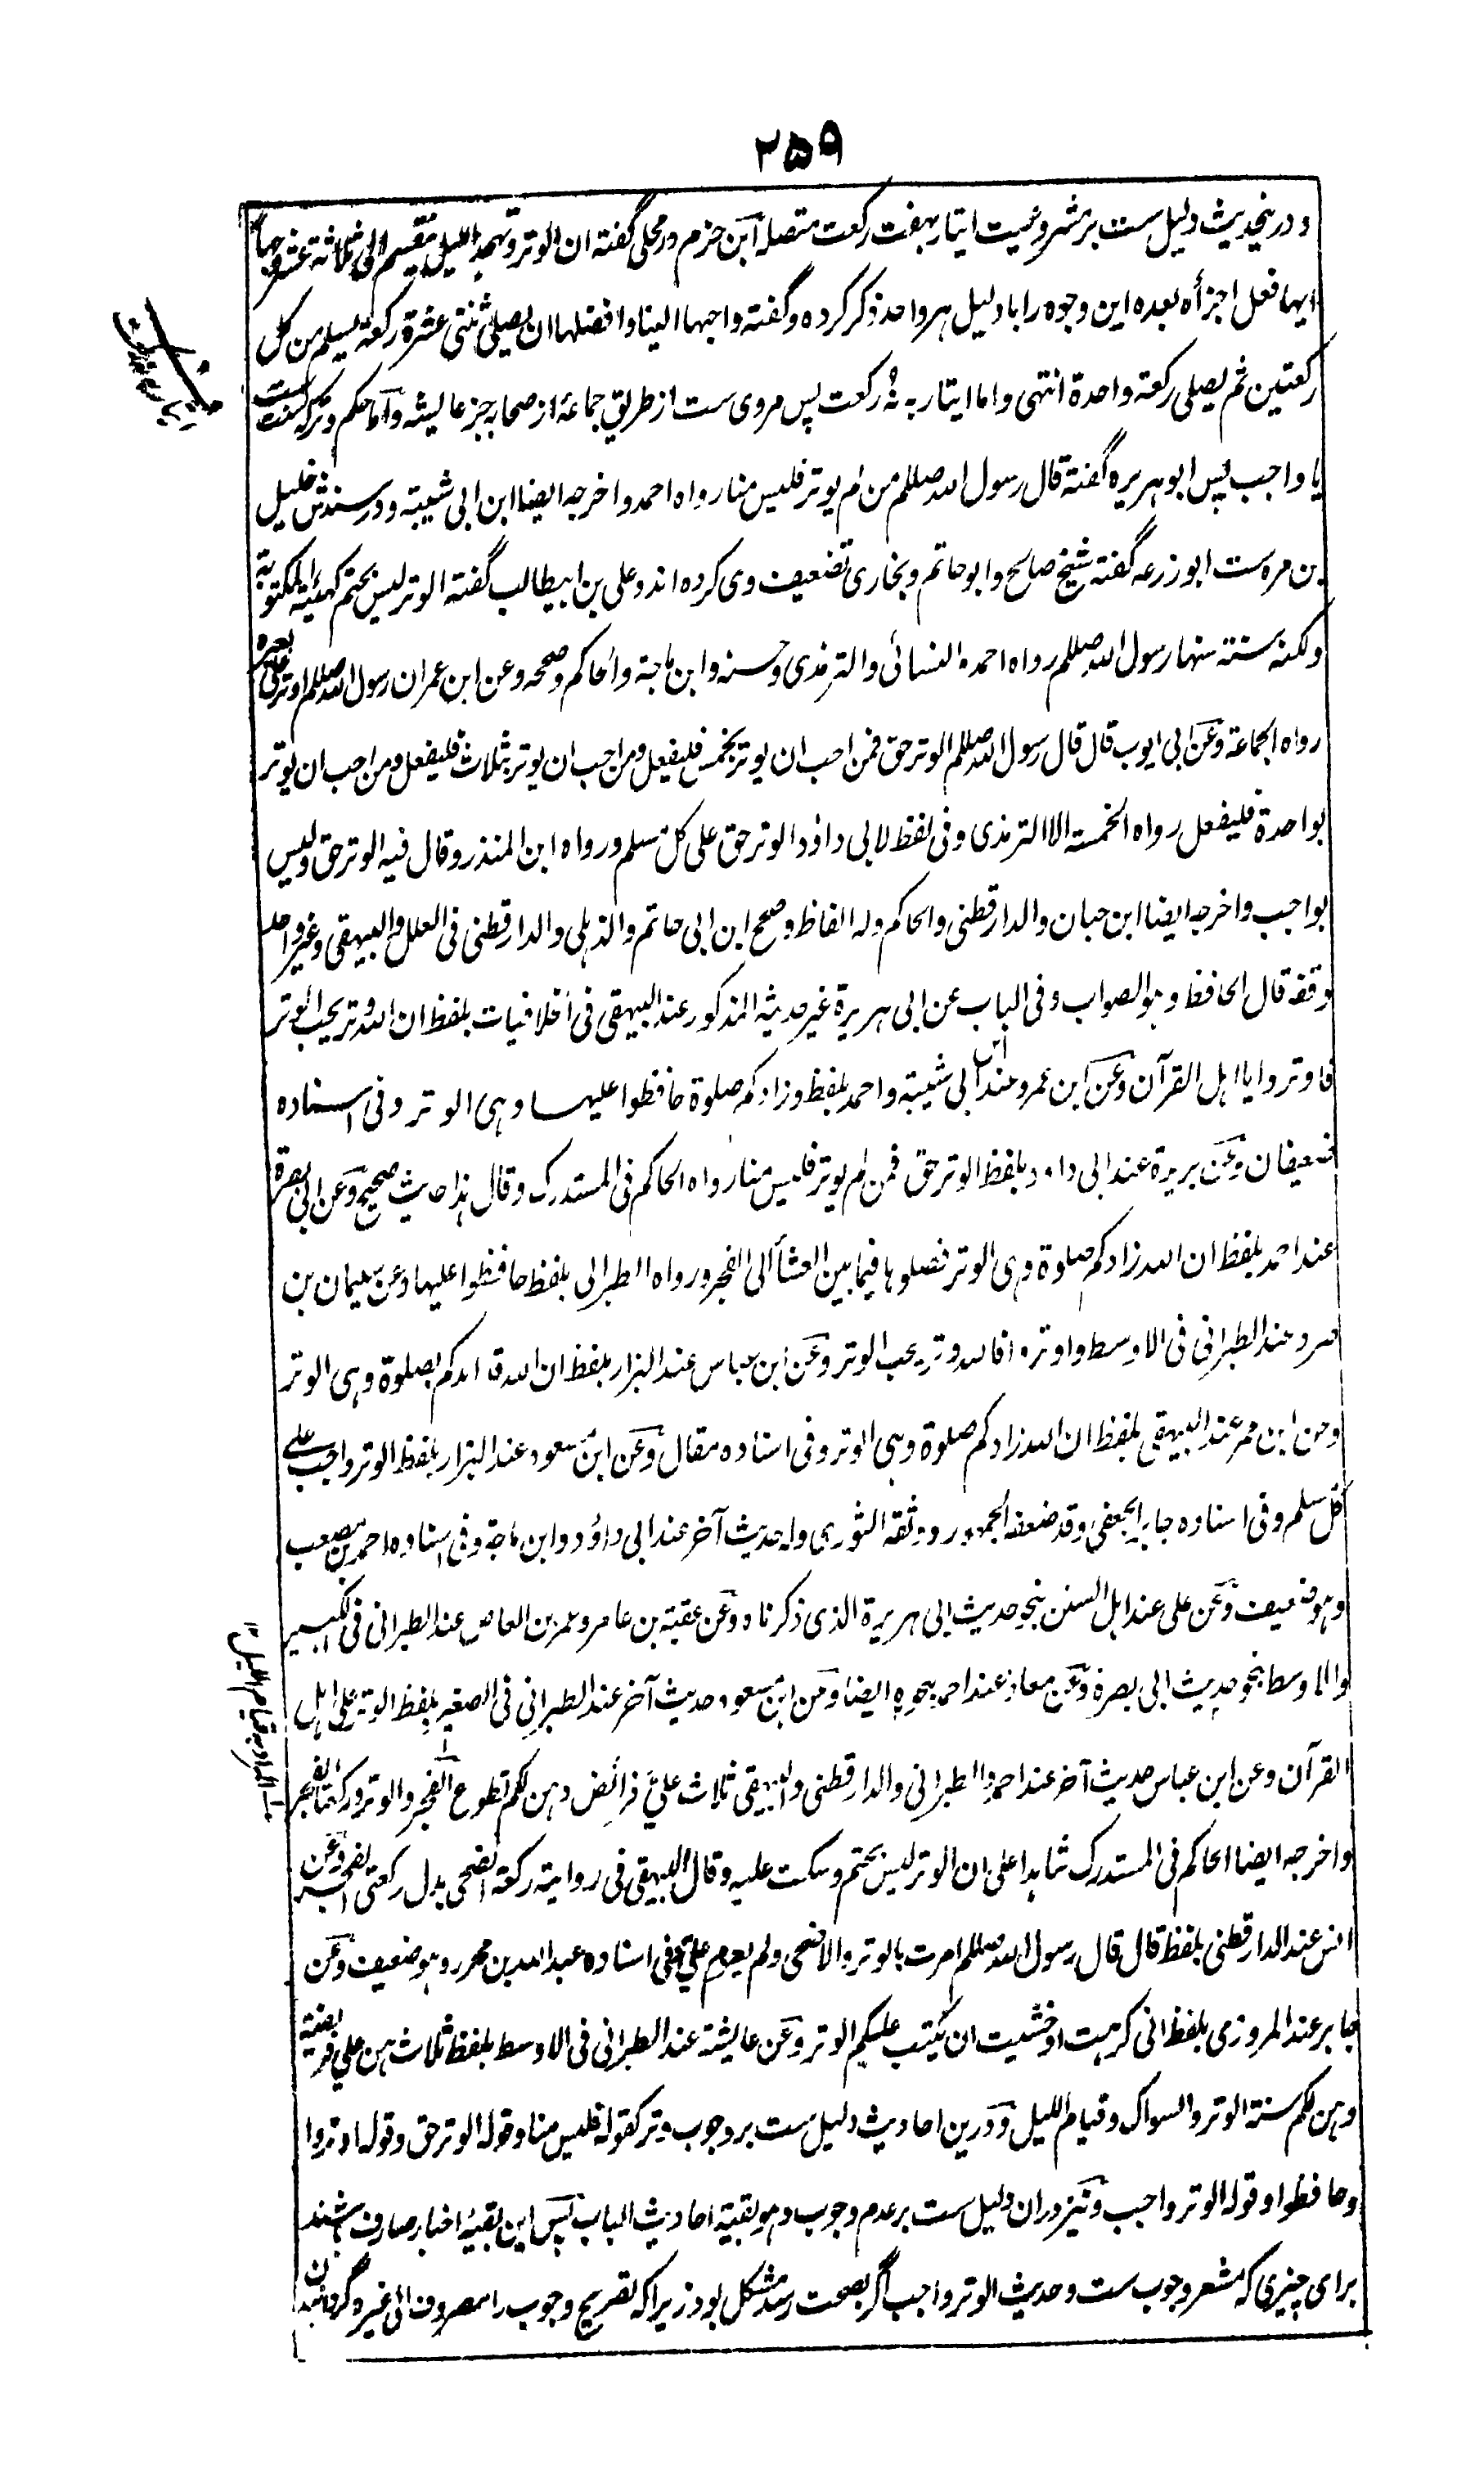 ۲۵۹
و درینحدیث دلیل ست بر مشروعیت ایتار بهفت رکعت متصل ابن حزم در محلی گفته ان الوتر وتهجد اللیل ینقسم الی ثلاثة عشر وجها
ایها فعل اجزأه بعده این وجوه را با دلیل هر واحد ذکر کرده و گفته واحبها الینا وافضلها ان یصلی ثنتی عشرة رکعة یسلم من کل
رکعتین ثم یصلی رکعة واحدة انتهی واما ایتار به نُه رکعت پس مروی ست از طریق جماعهٔ از صحابه جز عایشه واما حکم وتر که سنت ست
یا واجب پس ابو هریره گفته قال رسول الله صللم من لم یوتر فلیس منا رواه احمد واخرجه ایضا ابن ابی شیبة و در سندش خلیل
بن مره ست ابو زرعه گفته شیخ صالح وابو حاتم و بخاری تضعیف وی کرده اند وعلی بن ابیطالب گفته الوتر لیس بحتم کهیئة المکتوبة
ولکنه سنة سنها رسول الله صللم رواه احمد والنسائی والترمذی وحسنه وابن ماجة والحاکم وصححه وعن ابن عمر ان رسول الله صللم اوتر علی بعیره
رواه الجماعة وعن ابی ایوب قال قال رسول الله صللم الوتر حق فمن احب ان یوتر بخمس فلیفعل ومن احب ان یوتر بثلاث فلیفعل ومن احب ان یوتر
بواحدة فلیفعل رواه الخمسة الا الترمذی وفی لفظ لابی داؤد الوتر حق علی کل مسلم ورواه ابن المنذر وقال فیه الوتر حق ولیس
بواجب واخرجه ایضا ابن حبان والدارقطنی والحاکم وله الفاظ وصحح ابن ابی حاتم والذهلی والدارقطنی فی العلل والبیهقی وغیر واحد
وقفه قال الحافظ وهو الصواب وفی الباب عن ابی هریرة غیر حدیثه المذکور عند البیهقی فی الخلافیات بلفظ ان الله وتر یحب الوتر
فاوتروا یا اهل القرآن وعن ابن عمرو عند ابن ابی شیبة واحمد بلفظ وزادکم صلوة حافظوا علیها وهی الوتر وفی اسناده
ضعیفان وعن بریدة عند ابی داود بلفظ الوتر حق فمن لم یوتر فلیس منا رواه الحاکم فی المستدرک وقال هذا حدیث صحیح وعن ابی بصرة
عند احمد بلفظ ان الله زادکم صلوة وهی الوتر فصلوها فیما بین العشأ الی الفجر ورواه الطبرانی بلفظ حافظوا علیها وعن سلیمان بن
صرد عند الطبرانی فی الاوسط واوتروا فالله وتر یحب الوتر وعن ابن عباس عند البزار بلفظ ان الله قد امدکم بصلوة وهی الوتر
وعن ابن عمر عند البیهقی بلفظ ان الله زادکم صلوة وهی الوتر وفی اسناده مقال وعن ابن مسعود عند البزار بلفظ الوتر واجب علی
کل مسلم وفی اسناده جابر الجعفی وقد ضعفه الجمهور ووثقه الثوری وله حدیث آخر عند ابی داؤد وابن ماجة وفی اسناده احمد بن مصعب
وهو ضعیف وعن علی عند اهل السنن بنحو حدیث ابی هریرة الذی ذکرناه وعن عقبة بن عامر وعمرو بن العاص عند الطبرانی فی الکبیر
والاوسط بنحو حدیث ابی بصرة وعن معاذ عند احمد بنحوه ایضا وعن ابن مسعود حدیث آخر عند الطبرانی فی الصغیر بلفظ الوتر علی اهل
القرآن وعن ابن عباس حدیث آخر عند احمد والطبرانی والدارقطنی والبیهقی ثلاث علیَّ فرائض وهن لکم تطوع الفجر والوتر ورکعتا الفجر
واخرجه ایضا الحاکم فی المستدرک شاهدا علی ان الوتر لیس بحتم وسکت علیه وقال البیهقی فی روایته رکعة الضحی بدل رکعتی الفجر وعن
انس عند الدارقطنی بلفظ قال قال رسول الله صللم امرت بالوتر والاضحی ولم یعزم علیّ وفی اسناده عبد الله بن محرر وهو ضعیف وعن
جابر عند المروزی بلفظ انی کرهت او خشیت ان یکتب علیکم الوتر وعن عایشة عند الطبرانی فی الاوسط بلفظ ثلاث هن علی فریضة
وهن لکم سنة الوتر والسواک وقیام اللیل و درین احادیث دلیل ست بر وجوب وتر کقوله فلیس منا وقوله الوتر حق وقوله اوتروا
وحافظوا وقوله الوتر واجب و نیز دران دلیل ست بر عدم وجوب وهو بقیة احادیث الباب پس این بقیهٔ اخبار صارف باشند
برای چیزی که مشعر وجوب ست وحدیث الوتر واجب اگر بصحت رسد مشکل بود زیرا که تصریح وجوب را مصروف الی غیره گردانیدن
المراد به قیام اللیل